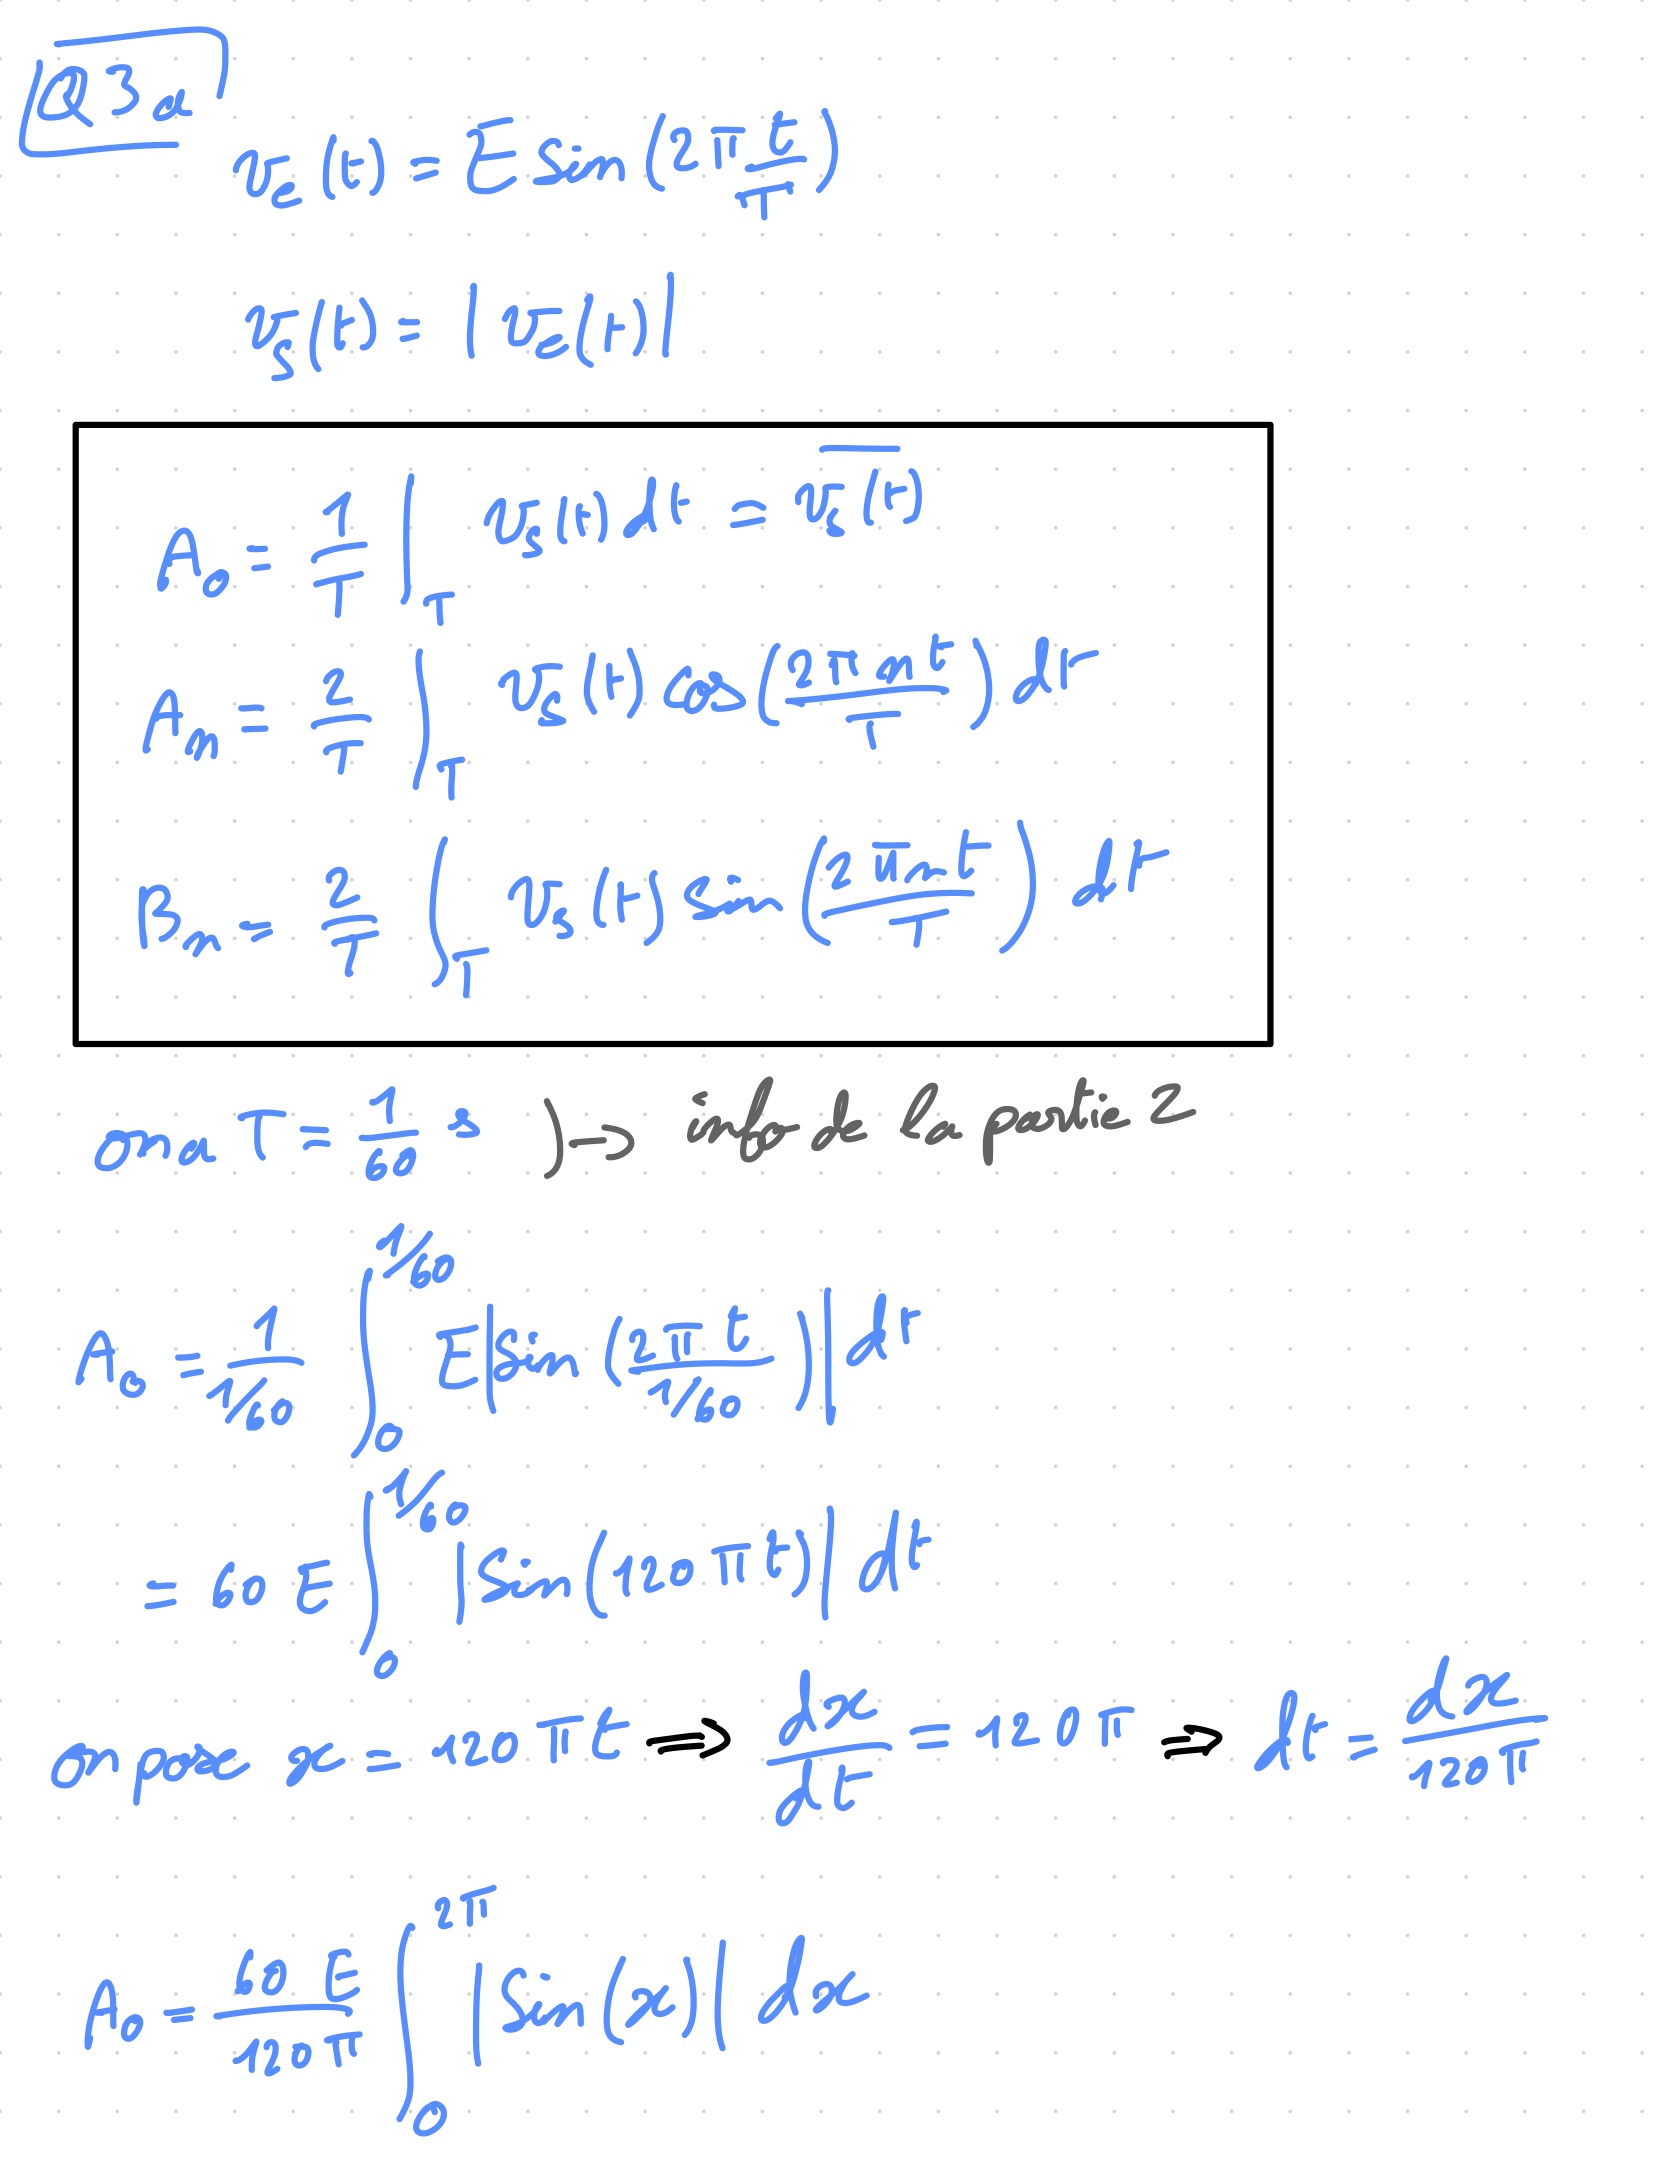 Q3a
v_e(t) = E sin(2π t/T)
v_s(t) = |v_e(t)|
A_0 = 1/T ∫_T v_s(t) dt = \overline{v_s(t)}
A_n = 2/T ∫_T v_s(t) cos(2πnt/T) dt
B_n = 2/T ∫_T v_s(t) sin(2πnt/T) dt
on a T = 1/60 s )→ info de la partie 2
A_0 = 1/(1/60) ∫_0^{1/60} E|sin(2πt/(1/60))| dt
= 60 E ∫_0^{1/60} |sin(120πt)| dt
on pose x = 120πt ⇒ dx/dt = 120π ⇒ dt = dx/120π
A_0 = 60E/120π ∫_0^{2π} |sin(x)| dx